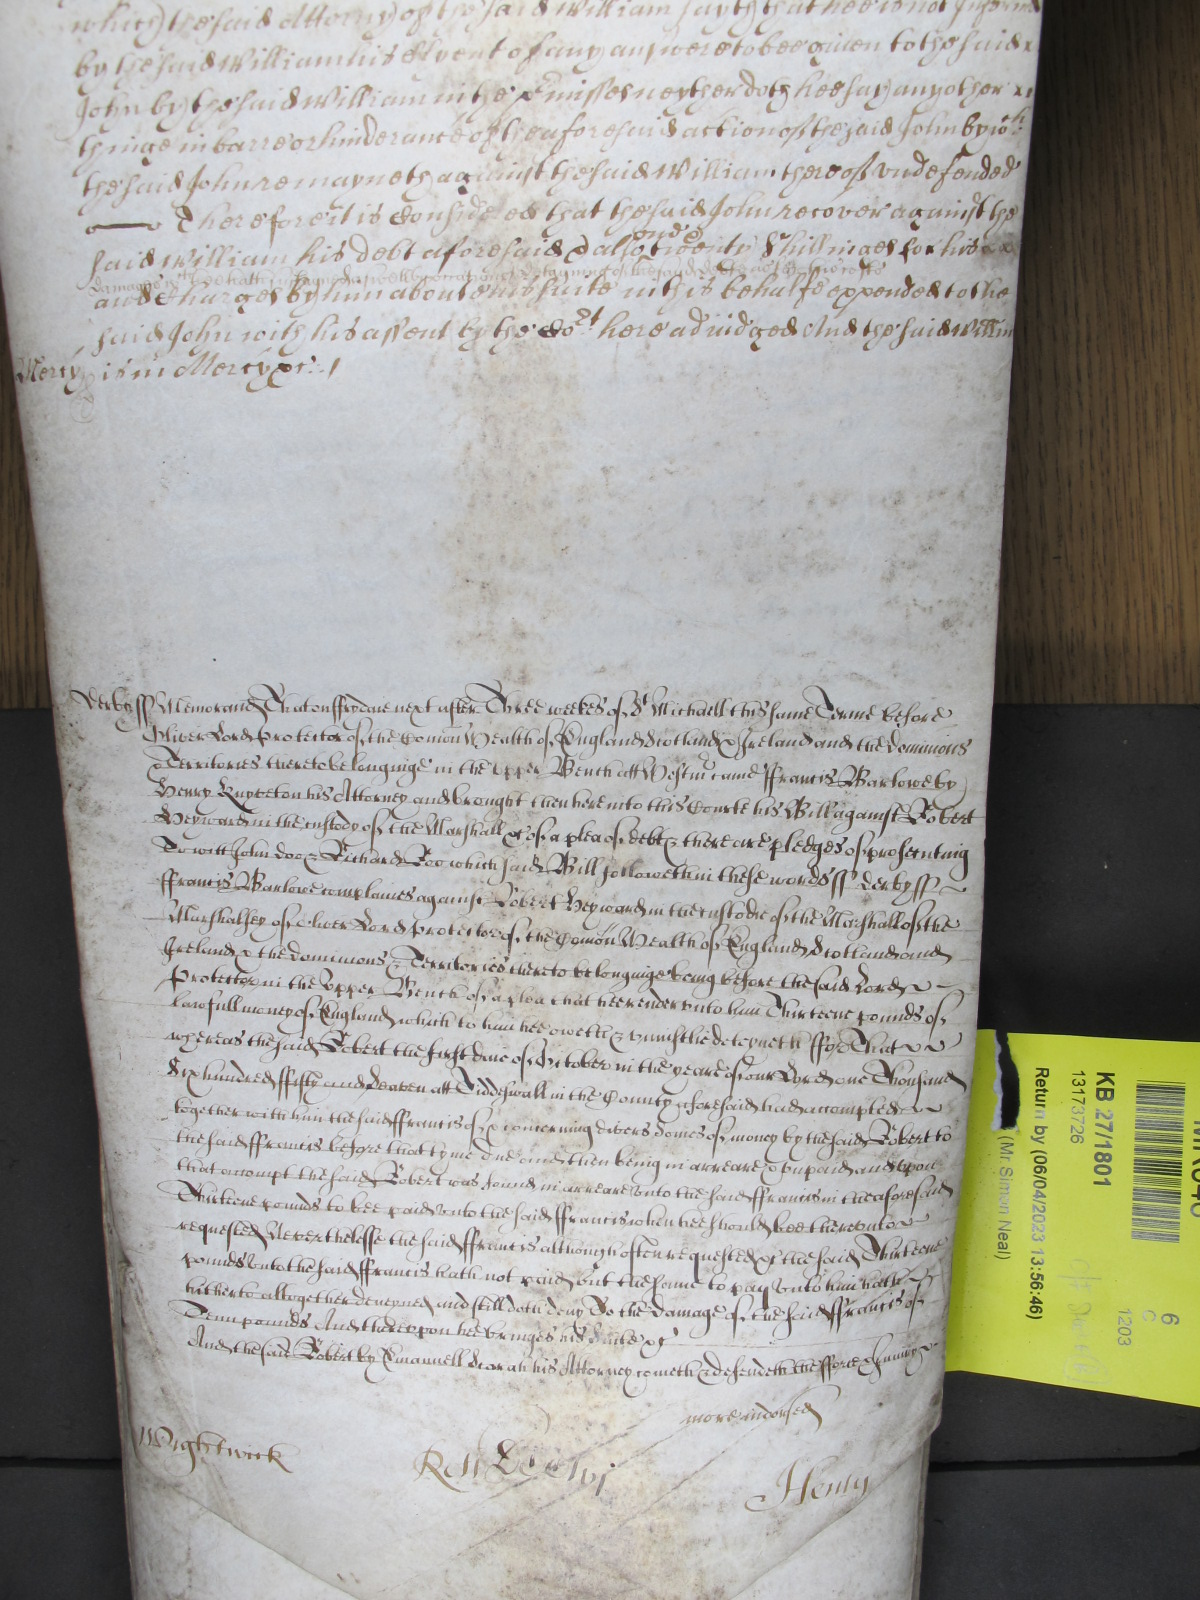 which the said Attorny of the said William sayth that hee is not Informed
by the said William his Clyent of any answere to bee given to the said
John by the said William in the p'misses neyther doth hee say any other
thinge in barre or hinderance of the aforesaid action of the said John by wch
the said John remayneth against the said William thereof undefended
Therefore it is Considered that the said John recover against the
said William his debt aforesaid & also twenty Shillinges for his
damages wch hee hath susteyned aswell by occasion of the detayninge of the said debt as for his costs
and Charges by him about his suite in this behalfe expended to the
said John with his assent by the Cort here adiudged And the said Willm
Mercy is in Mercy &c. /
Derby ss Memorand That on ffryday next after Three weekes of St Michaell this same Terme before
Oliver Lord Protector of the Comon Wealth of England Scotland & Ireland and the dominions
Territories thereto belonginge in the Upper Bench att Westmr came Francis Barlowe by
Henry his Attorney and brought then here into this Courte his Bill against Robert
Heyward in the custody of the Marshall &c of a plea of debt & there are pledges of prosecuting
To witt John Doo & Richard Roo which said Bill followeth in these words ss Derby ss
ffrancis Barlowe complaines against Robert Heyward in the custodie of the Marshall of the
Marshalsey of Oliver Lord Protector of the Comon Wealth of England Scotland and
Ireland & the dominions & Territories thereto belonginge being before the said Lord
Protector in the Upper Bench of a plea that hee render unto him Thirteene pounds of
lawfull money of England which to him hee oweth & uniustlie deteyneth ffor That
whereas the said Robert the first daie of October in the yeare of our Lord one Thousand
Six hundred ffifty and Seaven att Tiddeswall in the County aforesaid had accompted
together with him the said ffrancis of & concerning divers somes of money by the said Robert to
the said ffrancis before that tyme due and then being in arreare & unpaid and upon
that accompt the said Robert was found in arreare unto the said ffrancis in the aforesaid
Thirteene pounds to bee paid unto the said ffrancis when hee should bee thereunto
requested Neverthelesse the said ffrancis although often requested &c the said Thirteene
pounds unto the said ffrancis hath not paid but the same to pay unto him hath
hitherto altogether denyed and still doth deny To the Damage of the said ffrancis of
Tenn pounds And thereupon hee bringes his suite &c
And the said Robert by Emanuell his Attorney cometh & defendeth the fforce & Iniury &c
more indorsed
Wightwick
Roll
Henry
KB 27/1801
13173726
Return by (06/04/2023 13:56:46)
(Mr Simon Neal)
6
C
1203